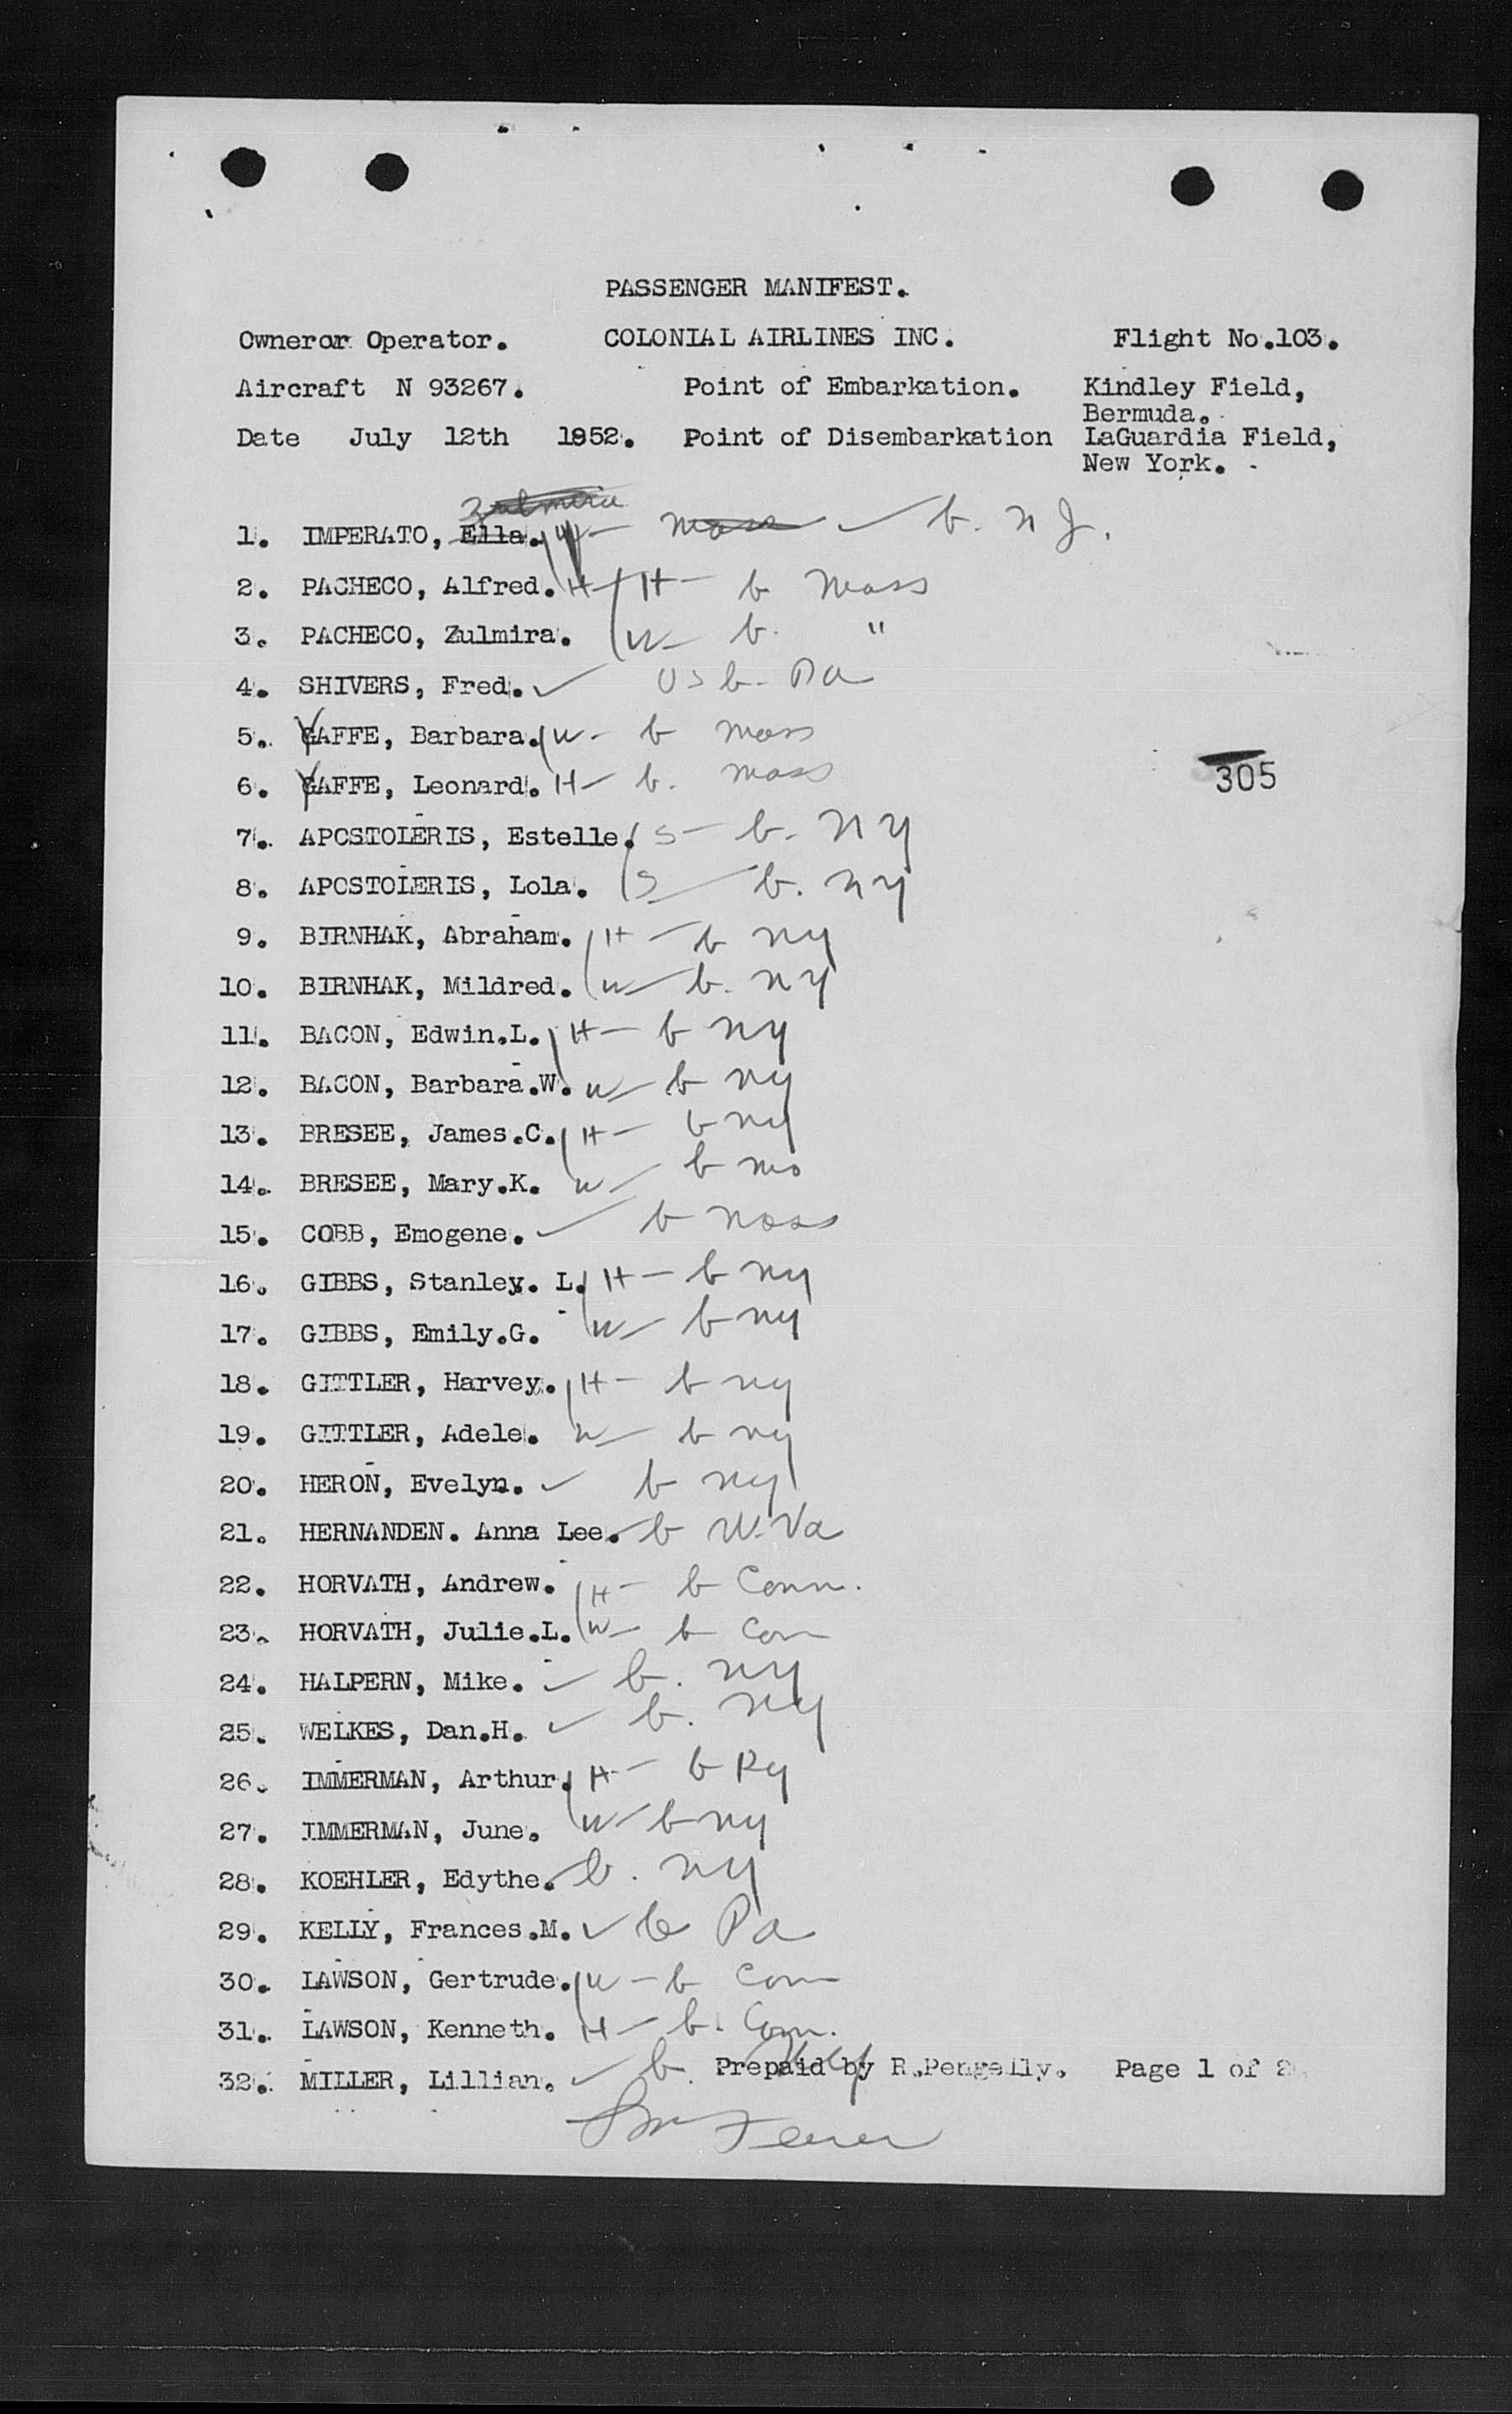 PASSENGER MANIFEST.
Owneror Operator. COLONIAL AIRLINES INC. Flight No.103.
Aircraft N 93267. Point of Embarkation. Kindley Field,
Bermuda.
Date July 12th 1952. Point of Disembarkation LaGuardia Field,
New York.
1. IMPERATO, Ella. W - Mass ✓ b. N J.
2. PACHECO, Alfred. H H - b Mass
3. PACHECO, Zulmira. W - b. "
4. SHIVERS, Fred. ✓ US b. Pa
5. YAFFE, Barbara. W - b Mass
6. YAFFE, Leonard. H - b. Mass
305
7. APOSTOLERIS, Estelle. S - b. NY
8. APOSTOLERIS, Lola. S - b. NY
9. BIRNHAK, Abraham. H - b NY
10. BIRNHAK, Mildred. W - b. NY
11. BACON, Edwin.L. H - b NY
12. BACON, Barbara.W. W - b NY
13. BRESEE, James.C. H - b NY
14. BRESEE, Mary.K. W - b Mo
15. COBB, Emogene. ✓ b Mass
16. GIBBS, Stanley. L. H - b NY
17. GIBBS, Emily.G. W - b NY
18. GITTLER, Harvey. H - b NY
19. GITTLER, Adele. W - b NY
20. HERON, Evelyn. ✓ b NY
21. HERNANDEN. Anna Lee. ✓ b W.Va
22. HORVATH, Andrew. H - b Conn.
23. HORVATH, Julie.L. W - b Con
24. HALPERN, Mike. ✓ b. NY
25. WELKES, Dan.H. ✓ b. NY
26. IMMERMAN, Arthur. H - b Ky
27. IMMERMAN, June. W - b NY
28. KOEHLER, Edythe. ✓ b. NY
29. KELLY, Frances.M. ✓ b Pa
30. LAWSON, Gertrude. W - b Con
31. LAWSON, Kenneth. H - b. Con.
32. MILLER, Lillian. ✓ b. Prepaid by R.Pengelly. Page 1 of 2